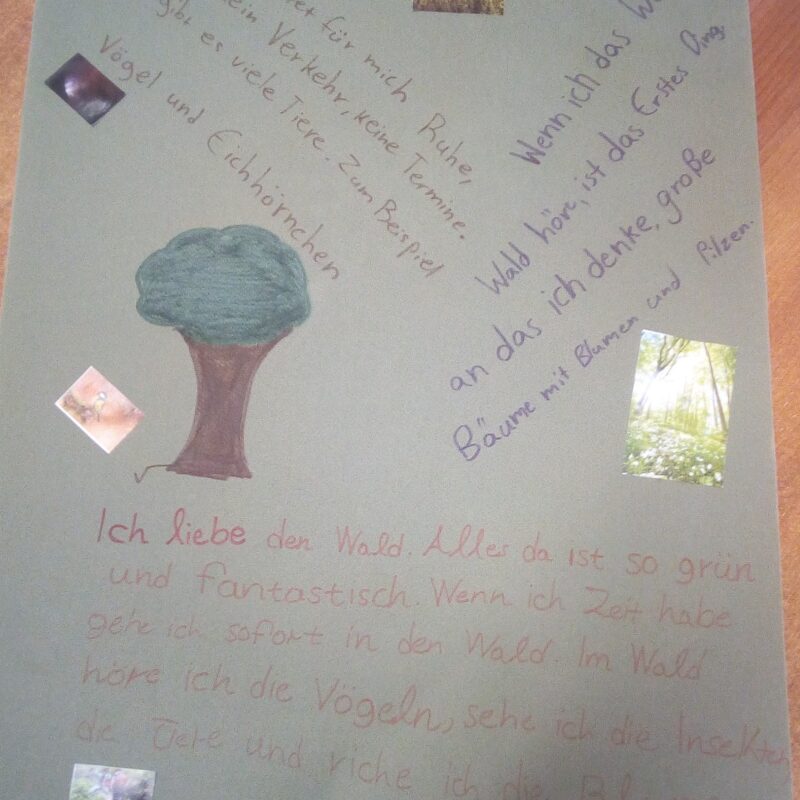 für mich Ruhe,
kein Verkehr, keine Termine.
gibt es viele Tiere. Zum Beispiel
Vögel und Eichhörnchen
Wenn ich das
Wald höre, ist das Erstes Ding,
an das ich denke, große
Bäume mit Blumen und Pilzen.
Ich liebe den Wald. Alles da ist so grün
und fantastisch. Wenn ich Zeit habe
gehe ich sofort in den Wald. Im Wald
höre ich die Vögeln, sehe ich die Insekten
die Tiere und riche ich die